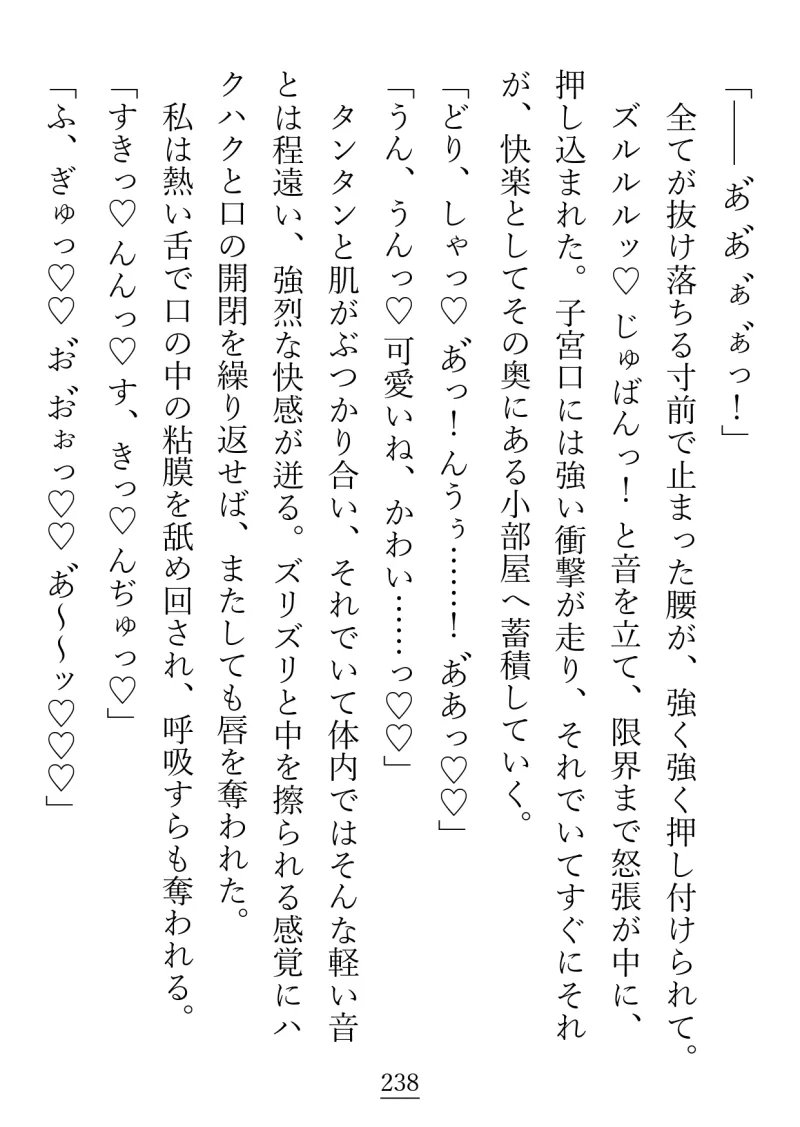 「――あ゙あ゙ぁ゙ぁ゙っ！」
　全てが抜け落ちる寸前で止まった腰が、強く強く押し付けられて。
　ズルルルッ♡じゅばんっ！と音を立て、限界まで怒張が中に、
押し込まれた。子宮口には強い衝撃が走り、それでいてすぐにそれ
が、快楽としてその奥にある小部屋へ蓄積していく。
「どり、しゃっ♡あ゙っ！んうぅ……！あ゙あっ♡♡」
「うん、うんっ♡可愛いね、かわい……っ♡♡」
　タンタンと肌がぶつかり合い、それでいて体内ではそんな軽い音
とは程遠い、強烈な快感が迸る。ズリズリと中を擦られる感覚にハ
クハクと口の開閉を繰り返せば、またしても唇を奪われた。
　私は熱い舌で口の中の粘膜を舐め回され、呼吸すらも奪われる。
「すきっ♡んんっ♡す、きっ♡んぢゅっ♡」
「ふ、ぎゅっ♡♡お゙お゙ぉっ♡♡あ゙～～ッ♡♡♡」
238